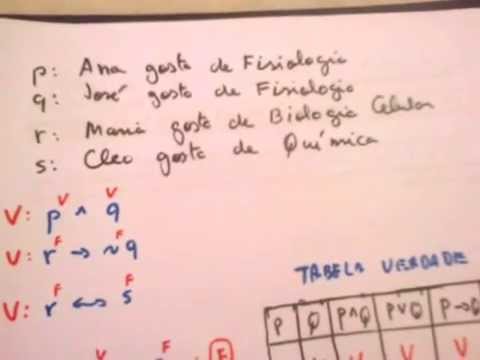 p: Ana gosta de Fisiologia
q: José gosta de Fisiologia
r: Maria gosta de Biologia Celular
s: Cleo gosta de Química
V V
V: p ∧ q
F F
V: r → ~q
F F
V: r ↔ s
TABELA VERDADE
P Q P∧Q P∨Q P→Q
V V V
V F F